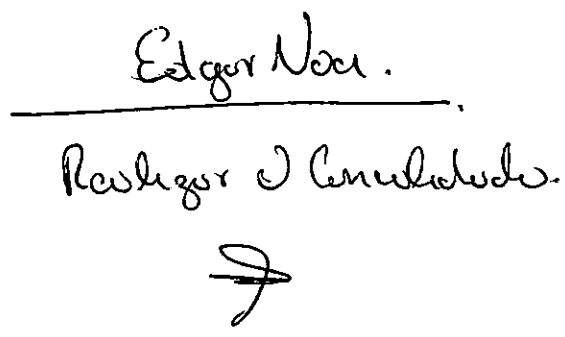 Edgar Noa.
Realizar o Consolidado.